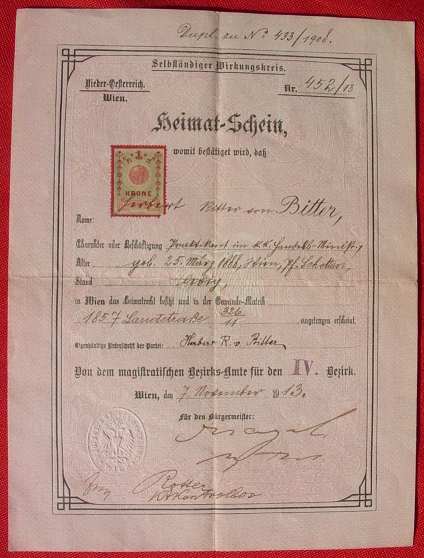 Dupl. zu No 433/1908.
Selbständiger Wirkungskreis.
Nieder-Oesterreich.
Wien.
Nr. 452/13
Heimat-Schein,
womit bestätiget wird, daß
1
KRONE
Name: Herbert Ritter von Bitter,
Charakter oder Beschäftigung im k.k. Handels-
Alter geb. 25. März 1886, Wien, Pf. Schotten
Stand ledig,
in Wien das Heimatrecht besitzt und in der Gemeinde-Matrik
1857 Landstraße 326/11 angetragen erscheint.
Eigenhändige Unterschrift der Partei: Herbert R. v. Bitter
Von dem magistratischen Bezirks-Amte für den IV. Bezirk.
Wien, am 7. November 1913.
Für den Bürgermeister: